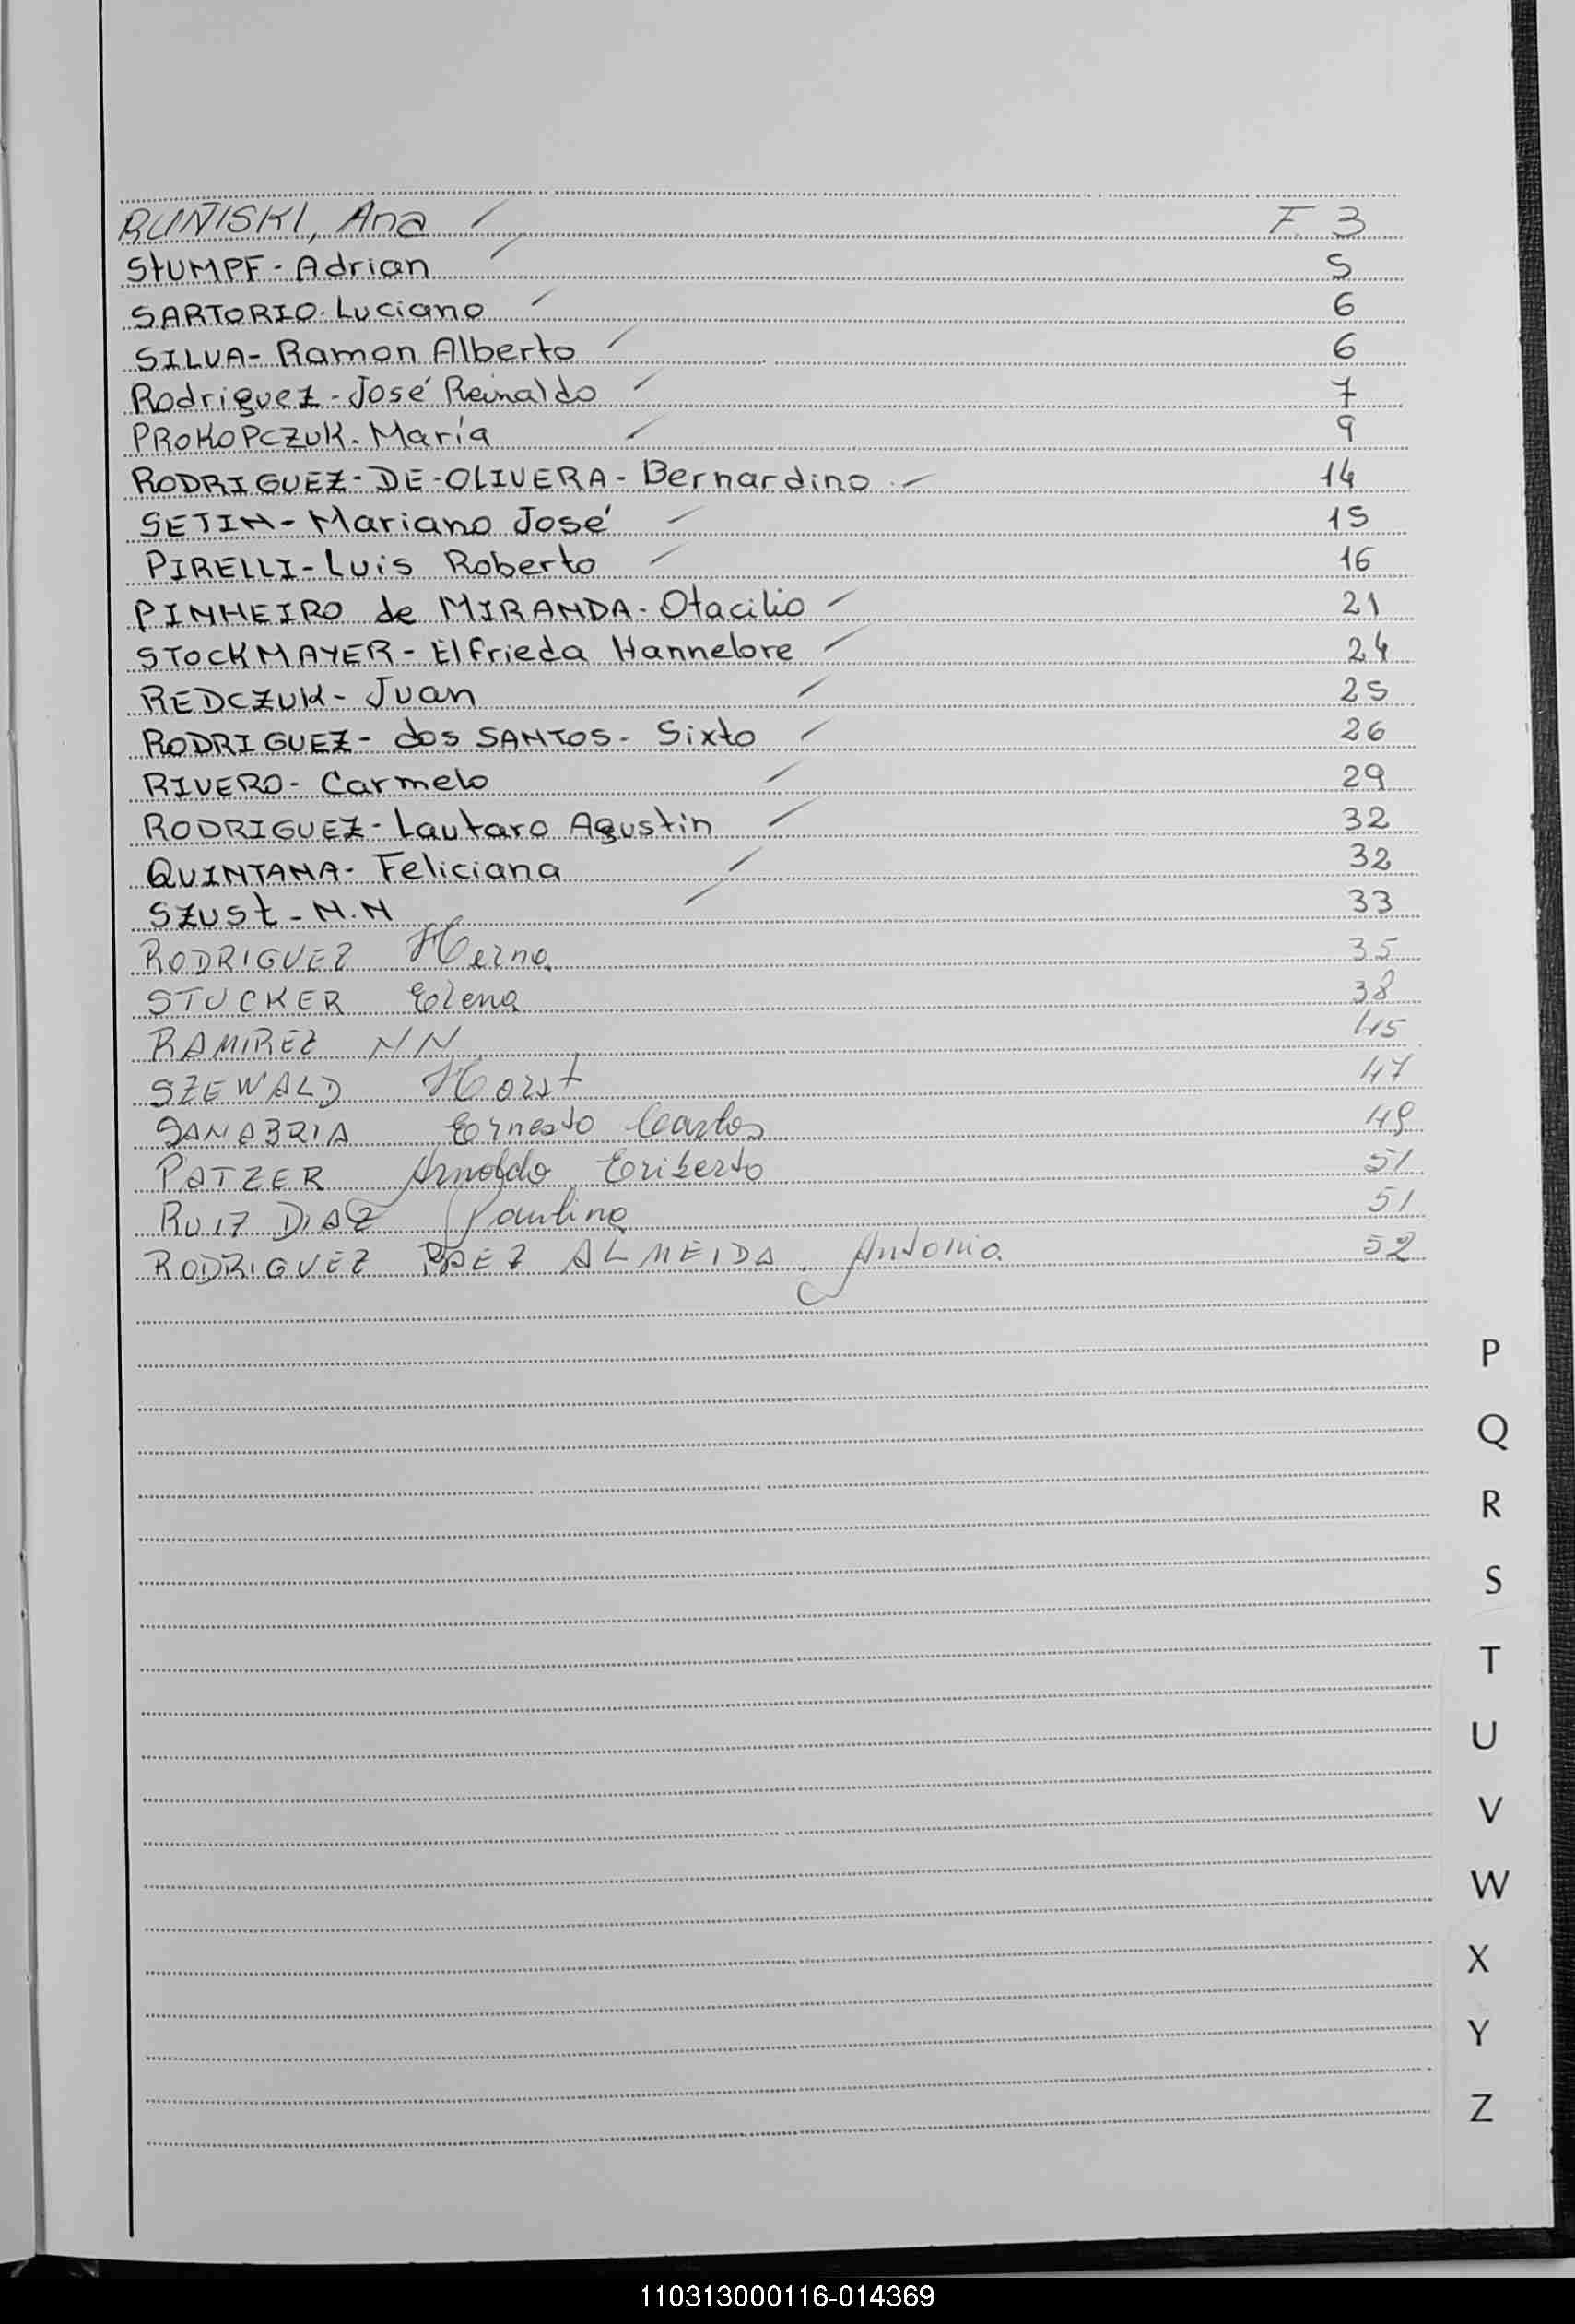 RUÑISKI, Ana F. 3
StUMPF - Adrian 5
SARTORIO - Luciano 6
SILVA - Ramon Alberto 6
Rodriguez - José Reinaldo 7
PROKOPCZUK - María 9
RODRIGUEZ - DE - OLIVERA - Bernardino 14
SETIN - Mariano José 15
PIRELLI - Luis Roberto 16
PINHEIRO de MIRANDA - Otacilio 21
STOCKMAYER - Elfrieda Hannelore 24
REDCZUK - Juan 25
RODRIGUEZ - dos SANTOS - Sixto 26
RIVERO - Carmelo 29
RODRIGUEZ - Lautaro Agustin 32
QUINTANA - Feliciana 32
SZUSt - N.N 33
RODRIGUEZ 35
STUCKER Elena 38
RAMIREZ NN 45
SZEWALD Horst 47
SANABRIA Ernesto Carlos 49
PATZER Arnoldo Eriberto 51
RUIZ DIAZ Paulina 51
RODRIGUEZ PAEZ ALMEIDA Antonia 52
P
Q
R
S
T
U
V
W
X
Y
Z
110313000116-014369